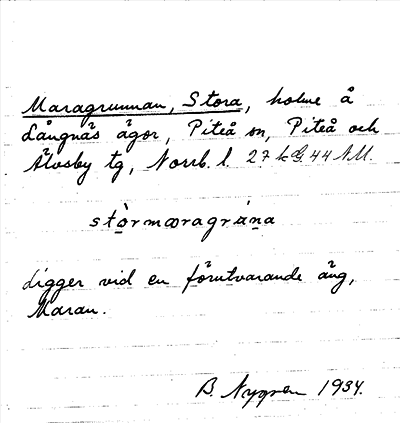 Maragrunnan, Stora, holme å
Långnäs ägor, Piteå sn, Piteå och
Älvsby tg, Norrb. l. 27 k G 44 NM.
stòrmæragrána
Ligger vid en förutvarande äng,
Maran.
B. Nygren 1934.